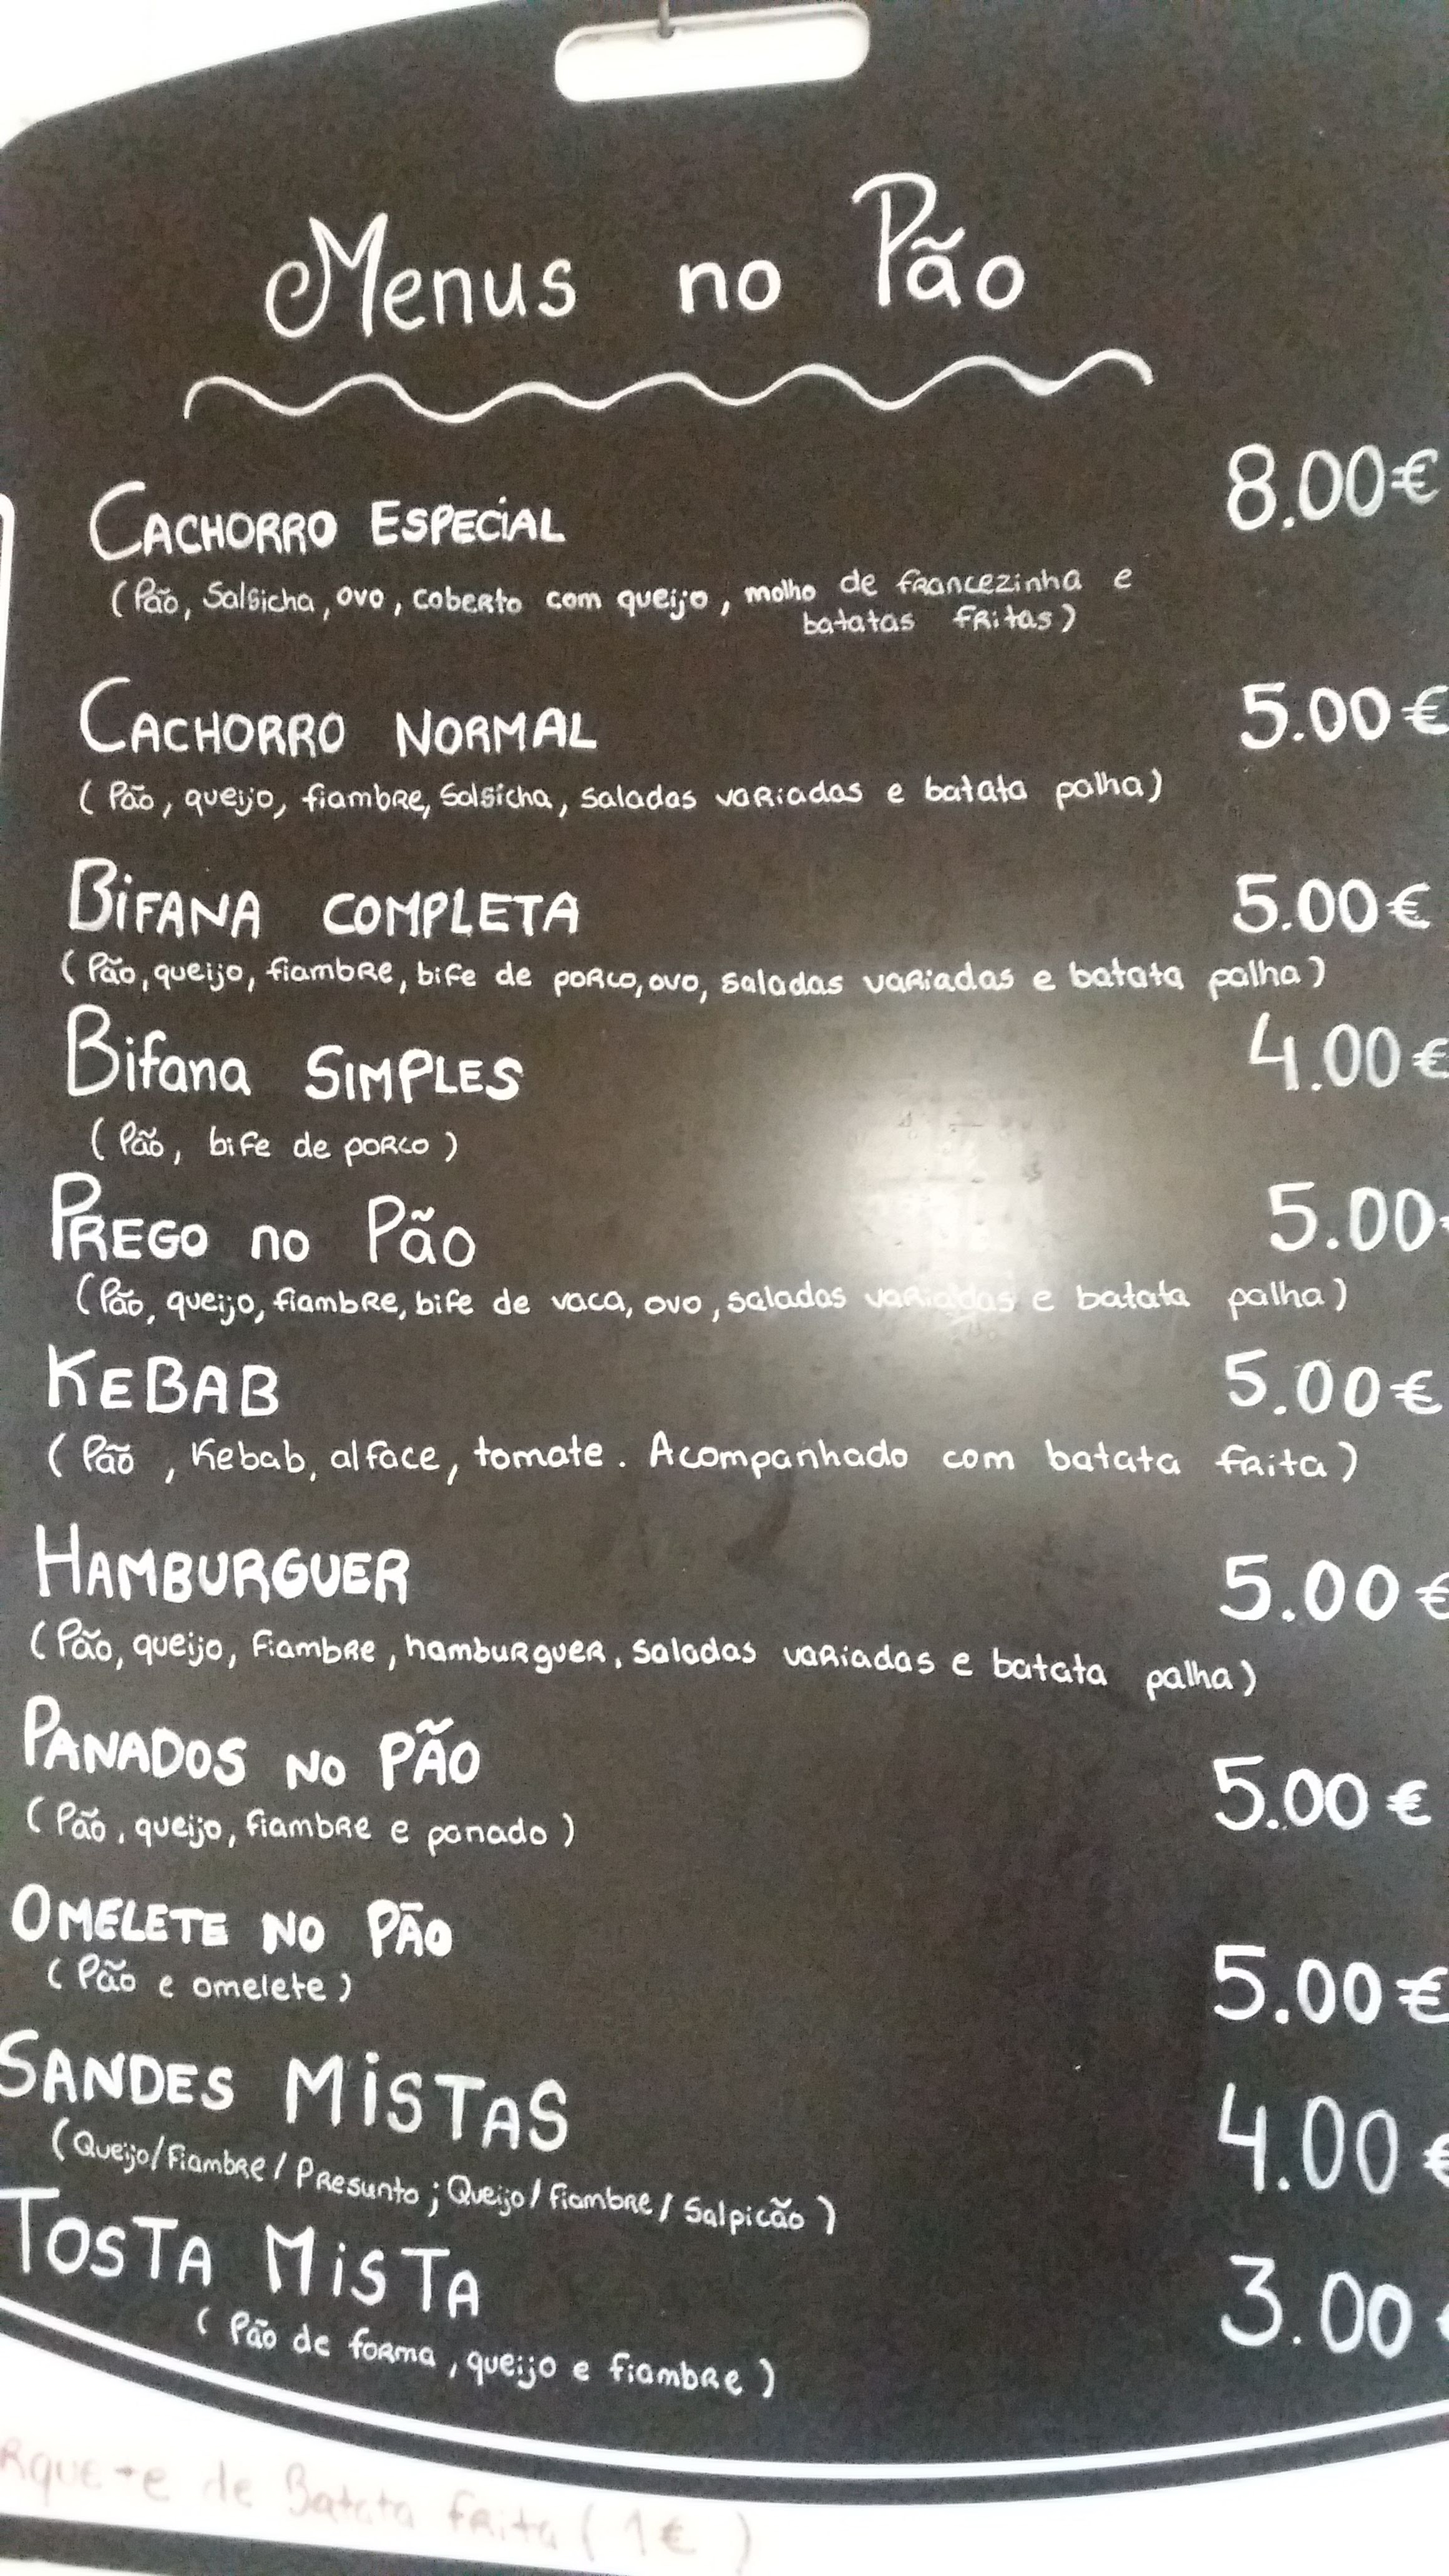 Menus no Pão
CACHORRO ESPECIAL 8.00€
(Pão, Salsicha, ovo, coberto com queijo, molho de francezinha e
batatas fritas)
CACHORRO NORMAL 5.00€
(Pão, queijo, fiambre, Salsicha, saladas variadas e batata palha)
BIFANA COMPLETA 5.00€
(Pão, queijo, fiambre, bife de porco, ovo, saladas variadas e batata palha)
Bifana SIMPLES 4.00€
(Pão, bife de porco)
PREGO no Pão 5.00
(Pão, queijo, fiambre, bife de vaca, ovo, saladas variadas e batata palha)
KEBAB 5.00€
(Pão, Kebab, alface, tomate. Acompanhado com batata frita)
HAMBURGUER 5.00€
(Pão, queijo, fiambre, hamburguer, saladas variadas e batata palha)
PANADOS NO PÃO 5.00€
(Pão, queijo, fiambre e panado)
OMELETE NO PÃO 5.00€
(Pão e omelete)
SANDES MISTAS 4.00€
(Queijo/Fiambre/Presunto; Queijo/fiambre/Salpicão)
TOSTA MISTA 3.00
(Pão de forma, queijo e fiambre)
de Batata frita (1€)